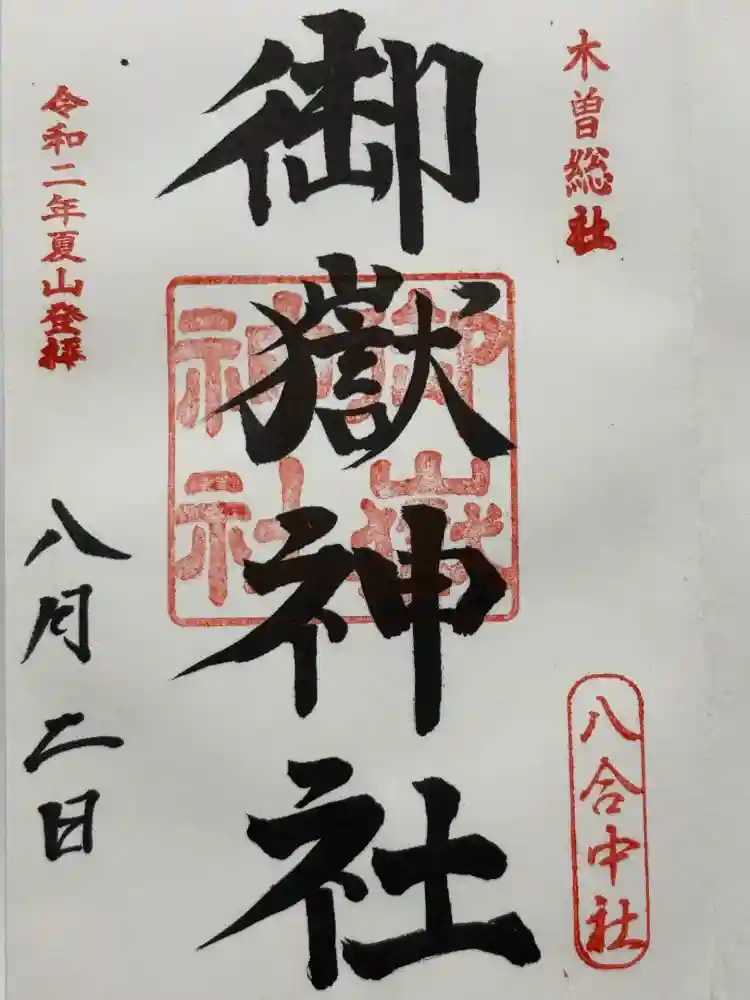 木曽総社
八合中社
御嶽神社
御嶽
神社
令和二年夏山登拝
八月二日